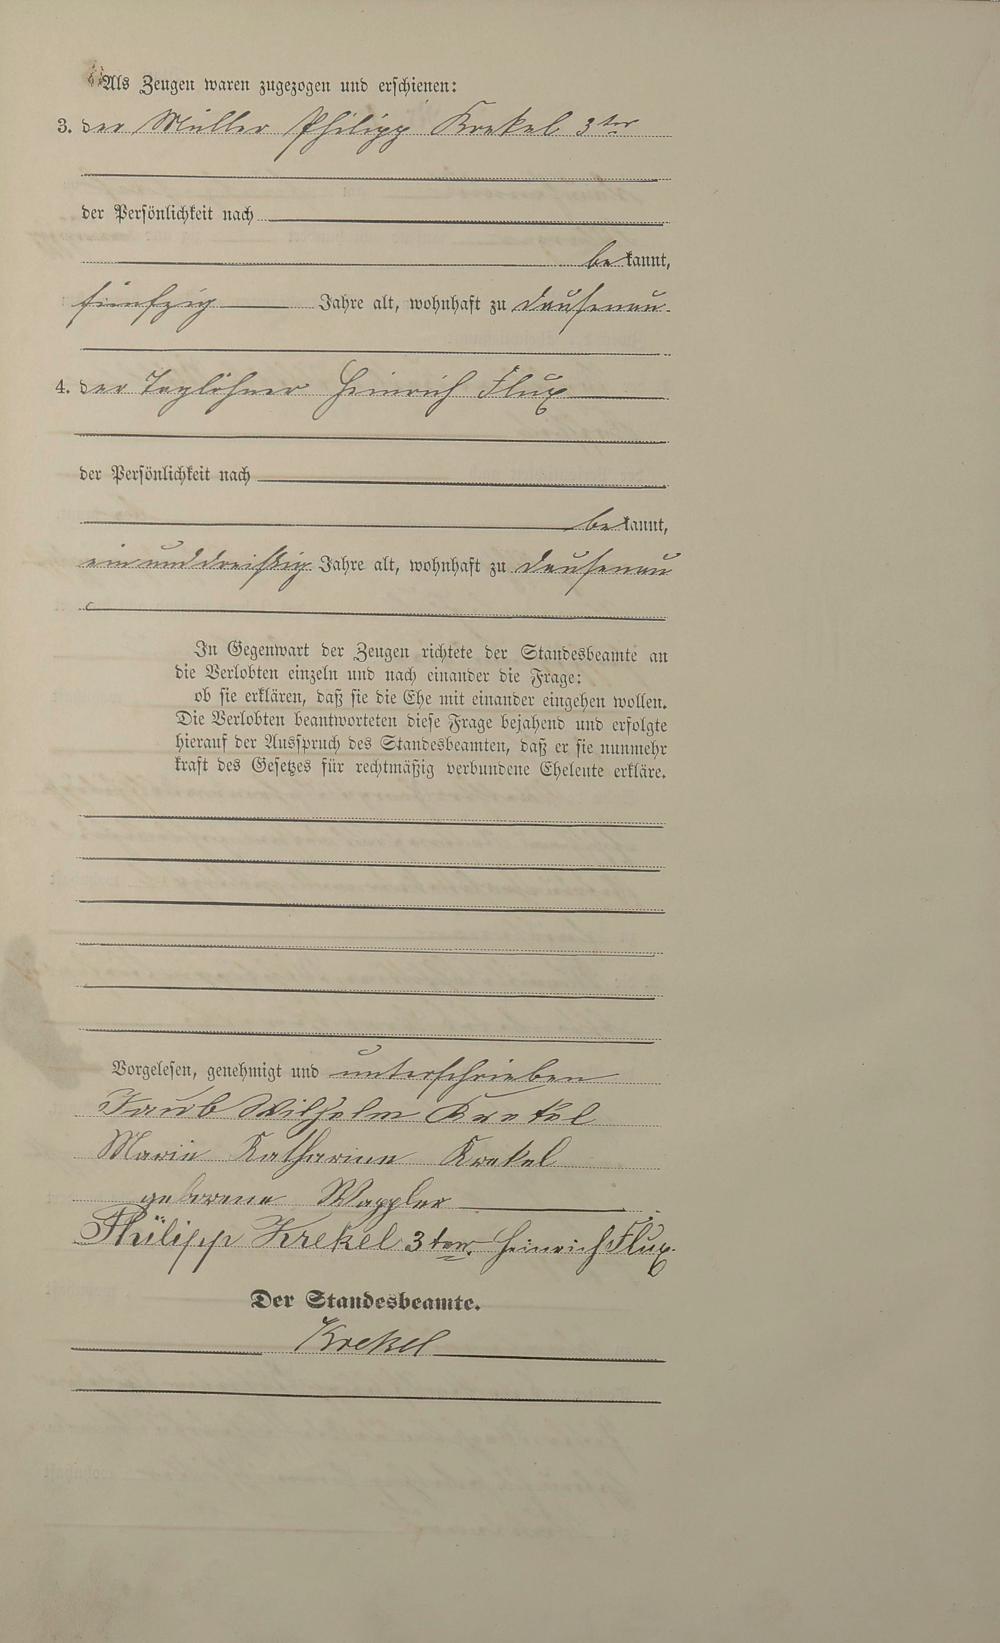 Als Zeugen waren zugezogen und erschienen:
3. der Müller Philipp Krekel 3ter
der Persönlichkeit nach
bekannt,
fünfzig Jahre alt, wohnhaft zu Dausenau.
4. der Taglöhner Heinrich Flux
der Persönlichkeit nach
bekannt,
einunddreißig Jahre alt, wohnhaft zu Dausenau
In Gegenwart der Zeugen richtete der Standesbeamte an
die Verlobten einzeln und nach einander die Frage:
ob sie erklären, daß sie die Ehe mit einander eingehen wollen.
Die Verlobten beantworteten diese Frage bejahend und erfolgte
hierauf der Ausspruch des Standesbeamten, daß er sie nunmehr
kraft des Gesetzes für rechtmäßig verbundene Eheleute erkläre.
Vorgelesen, genehmigt und unterschrieben
Wilhelm Krekel
Marie Katharine Krekel
geborene Wappler
Philipp Krekel 3ter. Heinrich Flux.
Der Standesbeamte.
Krekel